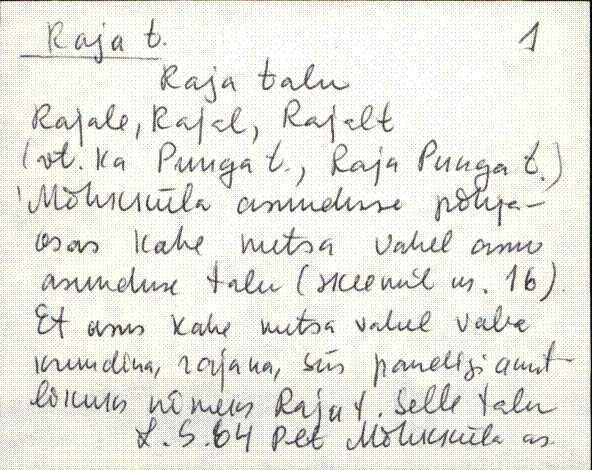 Raja t. 1
Raja talu
Rajale, Rajal, Rajalt
(vt. ka Punga t., Raja Punga t.)
Mõhkküla asunduse põhja-
osas kahe metsa vahel asus
asunduse talu (skeemil nr. 16).
Et asus kahe metsa vahel vaba
krundina, rajana, siis pandigi
nimeks Raja t. Selle talu
L. S. 64 Pet Mõhkküla as.